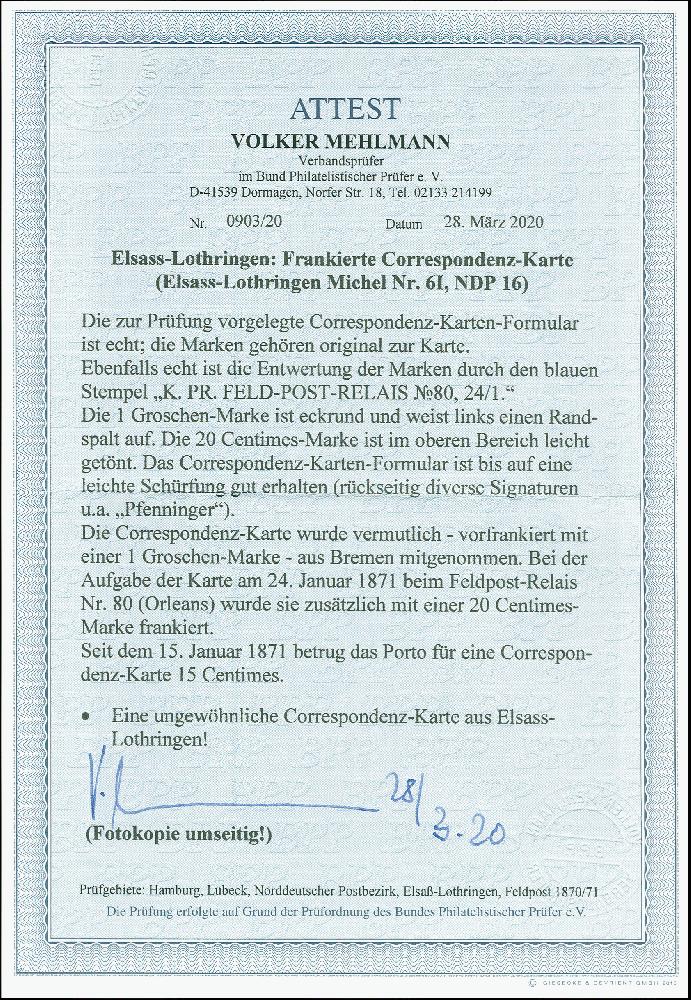 ATTEST
VOLKER MEHLMANN
Verbandsprüfer
im Bund Philatelistischer Prüfer e. V.
D-41539 Dormagen, Norfer Str. 18, Tel. 02133 214199
Nr. 0903/20 Datum 28. März 2020
Elsass-Lothringen: Frankierte Correspondenz-Karte
(Elsass-Lothringen Michel Nr. 6I, NDP 16)
Die zur Prüfung vorgelegte Correspondenz-Karten-Formular
ist echt; die Marken gehören original zur Karte.
Ebenfalls echt ist die Entwertung der Marken durch den blauen
Stempel „K. PR. FELD-POST-RELAIS №80, 24/1.“
Die 1 Groschen-Marke ist eckrund und weist links einen Rand-
spalt auf. Die 20 Centimes-Marke ist im oberen Bereich leicht
getönt. Das Correspondenz-Karten-Formular ist bis auf eine
leichte Schürfung gut erhalten (rückseitig diverse Signaturen
u.a. „Pfenninger“).
Die Correspondenz-Karte wurde vermutlich - vorfrankiert mit
einer 1 Groschen-Marke - aus Bremen mitgenommen. Bei der
Aufgabe der Karte am 24. Januar 1871 beim Feldpost-Relais
Nr. 80 (Orleans) wurde sie zusätzlich mit einer 20 Centimes-
Marke frankiert.
Seit dem 15. Januar 1871 betrug das Porto für eine Correspon-
denz-Karte 15 Centimes.
• Eine ungewöhnliche Correspondenz-Karte aus Elsass-
Lothringen!
28/3.20
(Fotokopie umseitig!)
Prüfgebiete: Hamburg, Lübeck, Norddeutscher Postbezirk, Elsaß-Lothringen, Feldpost 1870/71
Die Prüfung erfolgte auf Grund der Prüfordnung des Bundes Philatelistischer Prüfer e.V.
© GIESECKE & DEVRIENT GMBH